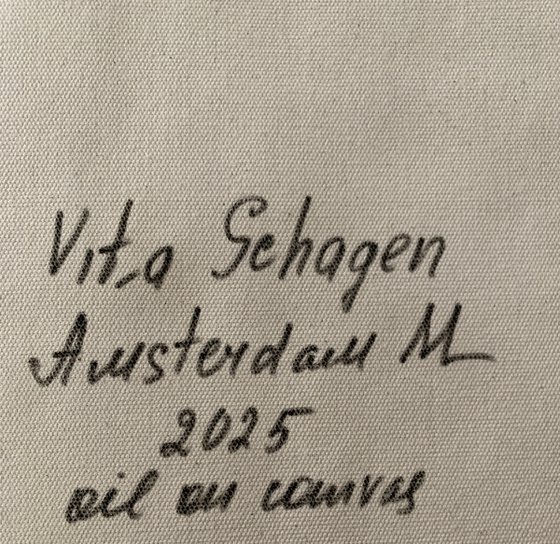 Vita Schagen
Amsterdam NL
2025
oil on canvas